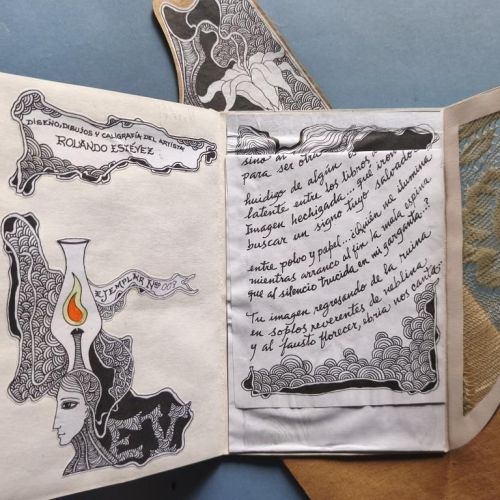 DISEÑO, DIBUJOS Y CALIGRAFÍA DEL ARTISTA
ROLANDO ESTÉVEZ
EJEMPLAR Nº 007
EV
sino al
para ser otra
huidigo de algún
latente entre los libros
Imagen hechizada... qué
buscar un signo tuyo salvador
entre polvo y papel...¿Quién me ilumina
mientras arranco al fin la mala espina
que al silencio trucida en mi garganta..?
Tu imagen regresando de la ruina
en soplos reverentes de neblina
y al fausto florecer, ebria nos canta..